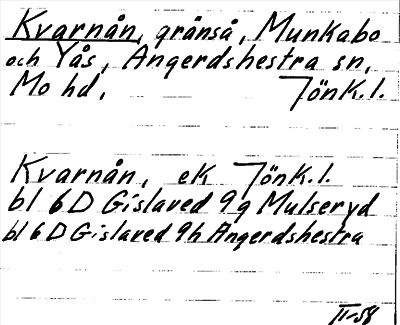 Kvarnån, gränså, Munkabo
och Yås, Angerdshestra sn,
Mo hd, Jönk.l.
Kvarnån, ek Jönk.l.
bl 6D Gislaved 9g Mulseryd
bl 6D Gislaved 9h Angerdshestra
II-58